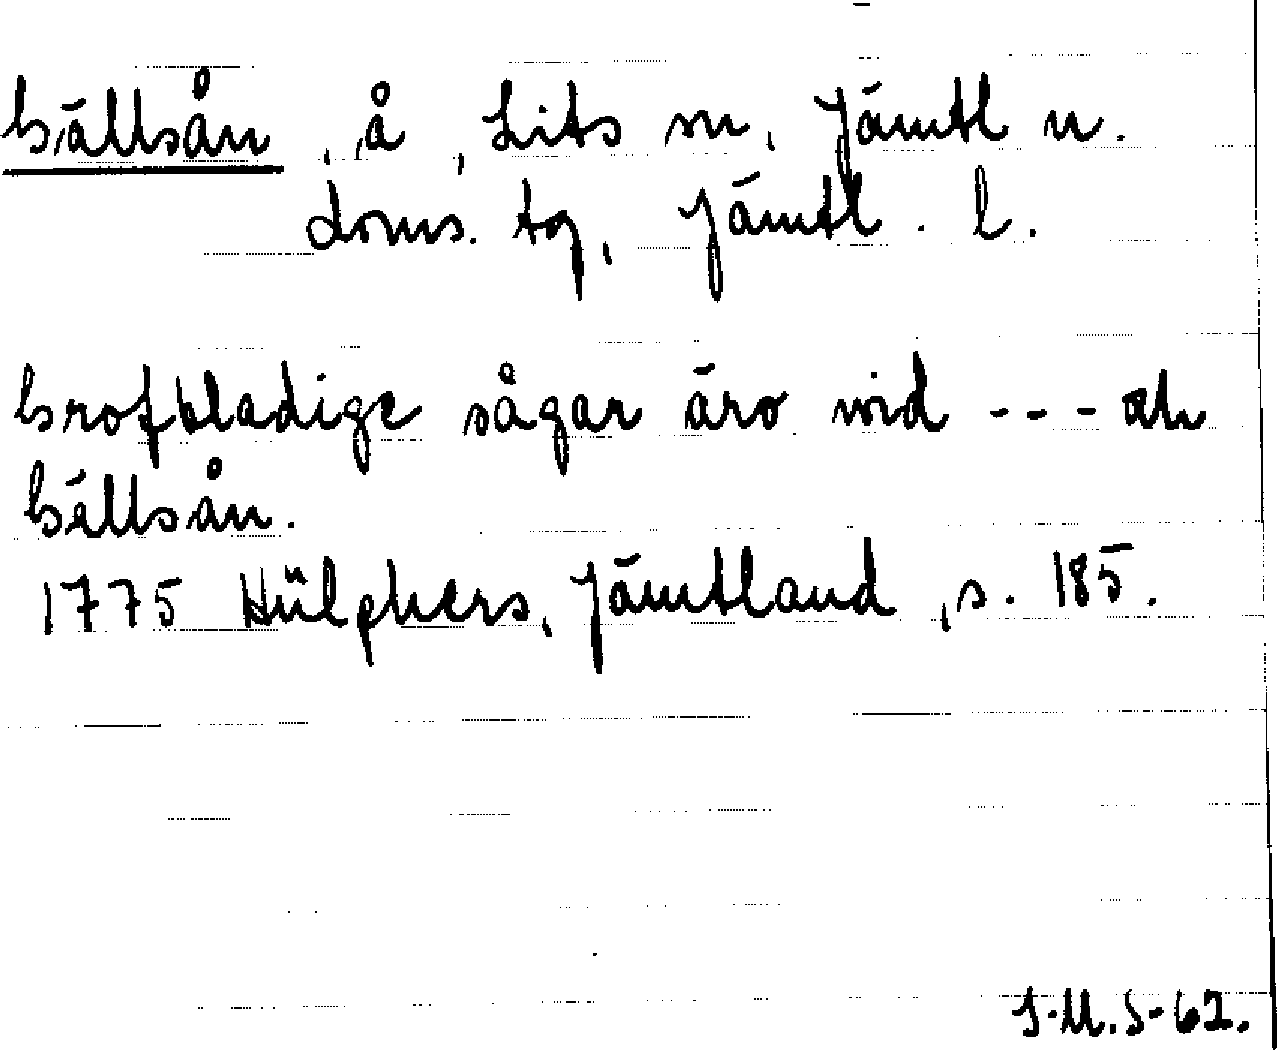 Gällsån, å, Lits sn, Jämtl n.
doms. tg, Jämtl. l.
Grofbladige sågar äro wid --- och
Gällsån.
1775 Hülphers, Jämtland, s. 185.
I.M.S-62.